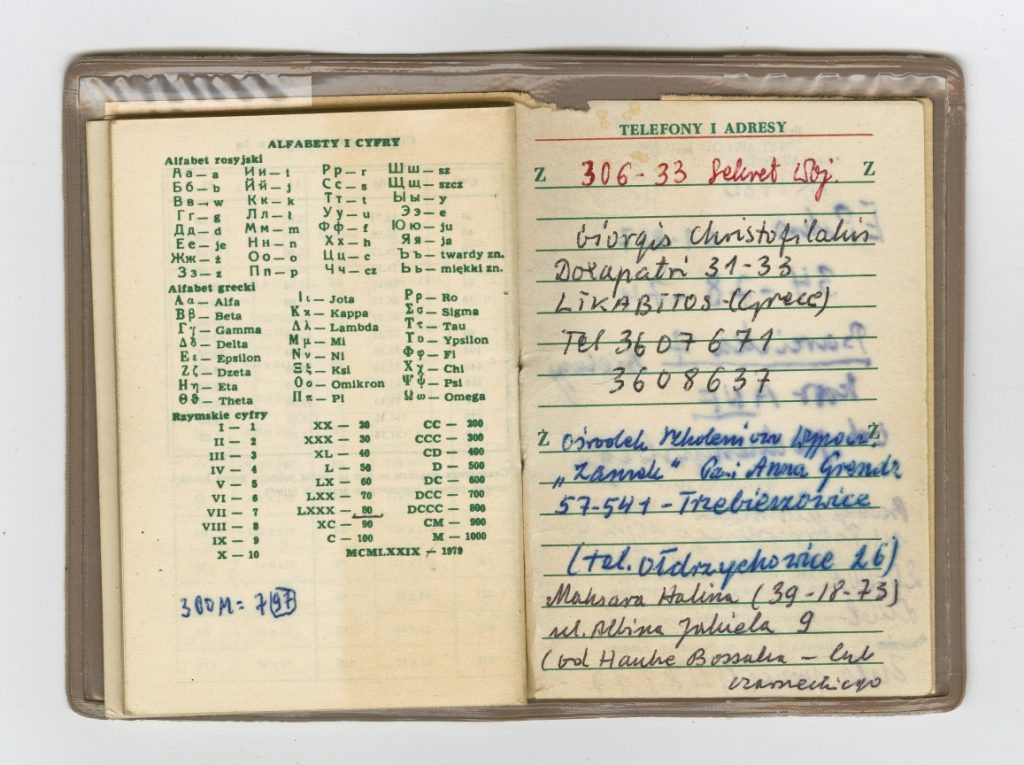 ALFABETY I CYFRY
Alfabet rosyjski
Аа — a Ии — i Рр — r Шш — sz
Бб — b Йй — j Сс — s Щщ — szcz
Вв — w Кк — k Тт — t Ыы — y
Гг — g Лл — ł Уу — u Ээ — e
Дд — d Мм — m Фф — f Юю — ju
Ее — je Нн — n Хх — h Яя — ja
Жж — ż Оо — o Цц — c Ъъ — twardy zn.
Зз — z Пп — p Чч — cz Ьь — miękki zn.
Alfabet grecki
Αα — Alfa Ιι — Jota Ρρ — Ro
Ββ — Beta Κκ — Kappa Σσ — Sigma
Γγ — Gamma Λλ — Lambda Ττ — Tau
Δδ — Delta Μμ — Mi Υυ — Ypsilon
Εε — Epsilon Νν — Ni Φφ — Fi
Ζζ — Dzeta Ξξ — Ksi Χχ — Chi
Ηη — Eta Οο — Omikron Ψψ — Psi
Θϑ — Theta Ππ — Pi Ωω — Omega
Rzymskie cyfry
I — 1 XX — 20 CC — 200
II — 2 XXX — 30 CCC — 300
III — 3 XL — 40 CD — 400
IV — 4 L — 50 D — 500
V — 5 LX — 60 DC — 600
VI — 6 LXX — 70 DCC — 700
VII — 7 LXXX — 80 DCCC — 800
VIII — 8 XC — 90 CM — 900
IX — 9 C — 100 M — 1000
X — 10 MCMLXXIX — 1979
300M = 797
TELEFONY I ADRESY
Z 306-33 Sekret Woj. Z
Giorgis Christofilakis
Dołapatri 31-33
LIKABITOS (Grece)
Tel 3607671
3608637
Ż Ośrodek Szkoleniowo Wypocz. Ż
„Zamek" Pani Anna
57-541 - Trzebieszowice
(tel. Ołdrzychowice 26)
Maksara Halina (39-18-73)
ul. Albina Jakiela 9
(od Hauke Bossaka - lub
czarneckiego